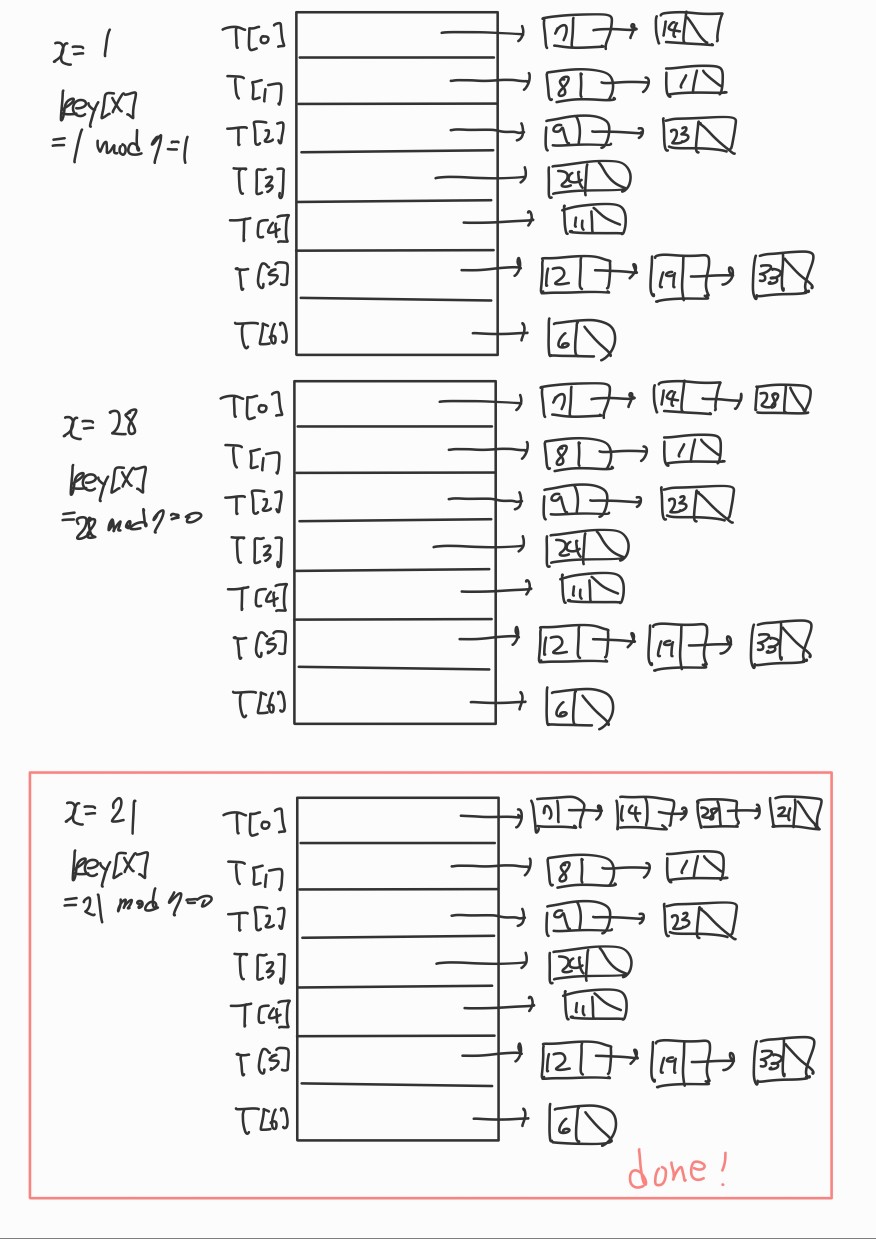 x= 1
key[x]
=1 mod 7=1
T[0] 7 14
T[1] 8 1
T[2] 9 23
T[3] 24
T[4] 11
T[5] 12 19 33
T[6] 6
x= 28
key[x]
=28 mod 7=0
T[0] 7 14 28
T[1] 8 1
T[2] 9 23
T[3] 24
T[4] 11
T[5] 12 19 33
T[6] 6
x= 21
key[x]
=21 mod 7=0
T[0] 7 14 28 21
T[1] 8 1
T[2] 9 23
T[3] 24
T[4] 11
T[5] 12 19 33
T[6] 6
done!